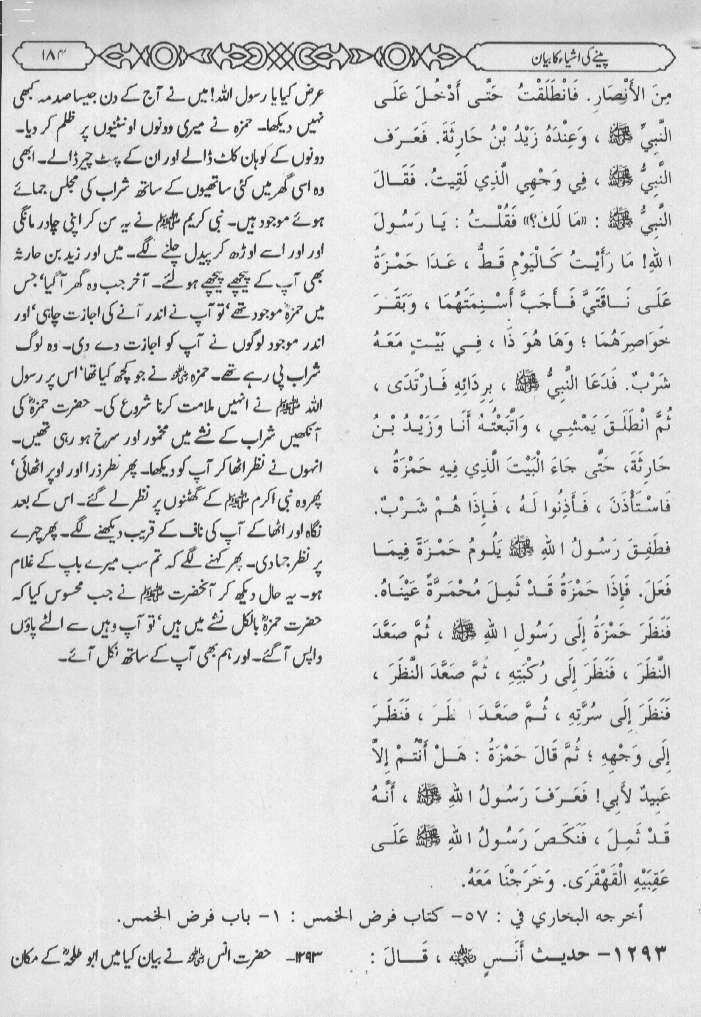 پینے کی اشیاء کا بیان
۱۸۴
مِنَ الأَنْصَارِ. فَانْطَلَقْتُ حَتَّى أَدْخُلَ عَلَى
النَّبِيِّ ﷺ ، وَعِنْدَهُ زَيْدُ بْنُ حَارِثَةَ. فَعَرَفَ
النَّبِيُّ ﷺ ، فِي وَجْهِي الَّذِي لَقِيتُ. فَقَالَ
النَّبِيُّ ﷺ : «مَا لَكَ؟» فَقُلْتُ : يَا رَسُولَ
اللهِ! مَا رَأَيْتُ كَالْيَوْمِ قَطُّ ، عَدَا حَمْزَةُ
عَلَى نَاقَتَيَّ فَأَجَبَّ أَسْنِمَتَهُمَا ، وَبَقَرَ
خَوَاصِرَهُمَا ؛ وَهَا هُوَ ذَا ، فِي بَيْتٍ مَعَهُ
شَرْبٌ. فَدَعَا النَّبِيُّ ﷺ ، بِرِدَائِهِ فَارْتَدَى ،
ثُمَّ انْطَلَقَ يَمْشِي ، وَاتَّبَعْتُهُ أَنَا وَزَيْدُ بْنُ
حَارِثَةَ، حَتَّى جَاءَ الْبَيْتَ الَّذِي فِيهِ حَمْزَةُ ،
فَاسْتَأْذَنَ ، فَأَذِنُوا لَهُ ، فَإِذَا هُمْ شَرْبٌ.
فَطَفِقَ رَسُولُ اللهِ ﷺ يَلُومُ حَمْزَةَ فِيمَا
فَعَلَ. فَإِذَا حَمْزَةُ قَدْ ثَمِلَ مُحْمَرَّةً عَيْنَاهُ.
فَنَظَرَ حَمْزَةُ إِلَى رَسُولِ اللهِ ﷺ ، ثُمَّ صَعَّدَ
النَّظَرَ ، فَنَظَرَ إِلَى رُكْبَتِهِ ، ثُمَّ صَعَّدَ النَّظَرَ ،
فَنَظَرَ إِلَى سُرَّتِهِ ، ثُمَّ صَعَّدَ ، فَنَظَرَ
إِلَى وَجْهِهِ ؛ ثُمَّ قَالَ حَمْزَةُ : هَلْ أَنْتُمْ إِلاَّ
عَبِيدٌ لأَبِي! فَعَرَفَ رَسُولُ اللهِ ﷺ ، أَنَّهُ
قَدْ ثَمِلَ ، فَنَكَصَ رَسُولُ اللهِ ﷺ عَلَى
عَقِبَيْهِ الْقَهْقَرَى. وَخَرَجْنَا مَعَهُ.
عرض کیا یا رسول اللہ! میں نے آج کے دن جیسا صدمہ کبھی
نہیں دیکھا۔ حمزہ نے میری دونوں اونٹنیوں پر ظلم کر دیا۔
دونوں کے کوہان کاٹ ڈالے اور ان کے پیٹ چیر ڈالے۔ ابھی
وہ اسی گھر میں کئی ساتھیوں کے ساتھ شراب کی مجلس جمائے
ہوئے موجود ہیں۔ نبی کریم ﷺ نے یہ سن کر اپنی چادر مانگی
اور اور اسے اوڑھ کر پیدل چلنے لگے۔ میں اور زید بن حارثہ
بھی آپ کے پیچھے پیچھے ہو لئے۔ آخر جب وہ گھر آ گیا، جس
میں حمزہؓ موجود تھے، تو آپ نے اندر آنے کی اجازت چاہی، اور
اندر موجود لوگوں نے آپ کو اجازت دے دی۔ وہ لوگ
شراب پی رہے تھے۔ حمزہ رضی اللہ عنہ نے جو کچھ کیا تھا، اس پر رسول
اللہ ﷺ نے انہیں ملامت کرنا شروع کی۔ حضرت حمزہؓ کی
آنکھیں شراب کے نشے میں مخمور اور سرخ ہو رہی تھیں۔
انہوں نے نظر اٹھا کر آپ کو دیکھا۔ پھر نظر ذرا اور اوپر اٹھائی،
پھر وہ نبی اکرم ﷺ کے گھٹنوں پر نظر لے گئے۔ اس کے بعد
نگاہ اور اٹھا کے آپ کی ناف کے قریب دیکھنے لگے۔ پھر چہرے
پر نظر جما دی۔ پھر کہنے لگے کہ تم سب میرے باپ کے غلام
ہو۔ یہ حال دیکھ کر آنحضرت ﷺ نے جب محسوس کیا کہ
حضرت حمزہؓ بالکل نشے میں ہیں، تو آپ وہیں سے الٹے پاؤں
واپس آ گئے۔ اور ہم بھی آپ کے ساتھ نکل آئے۔
أخرجه البخاري في : ٥٧- كتاب فرض الخمس : ١- باب فرض الخمس.
١٢٩٣- حديث أَنَسٍ رضي الله عنه ، قَالَ :
۱۲۹۳- حضرت انس رضی اللہ عنہ نے بیان کیا میں ابو طلحہؓ کے مکان